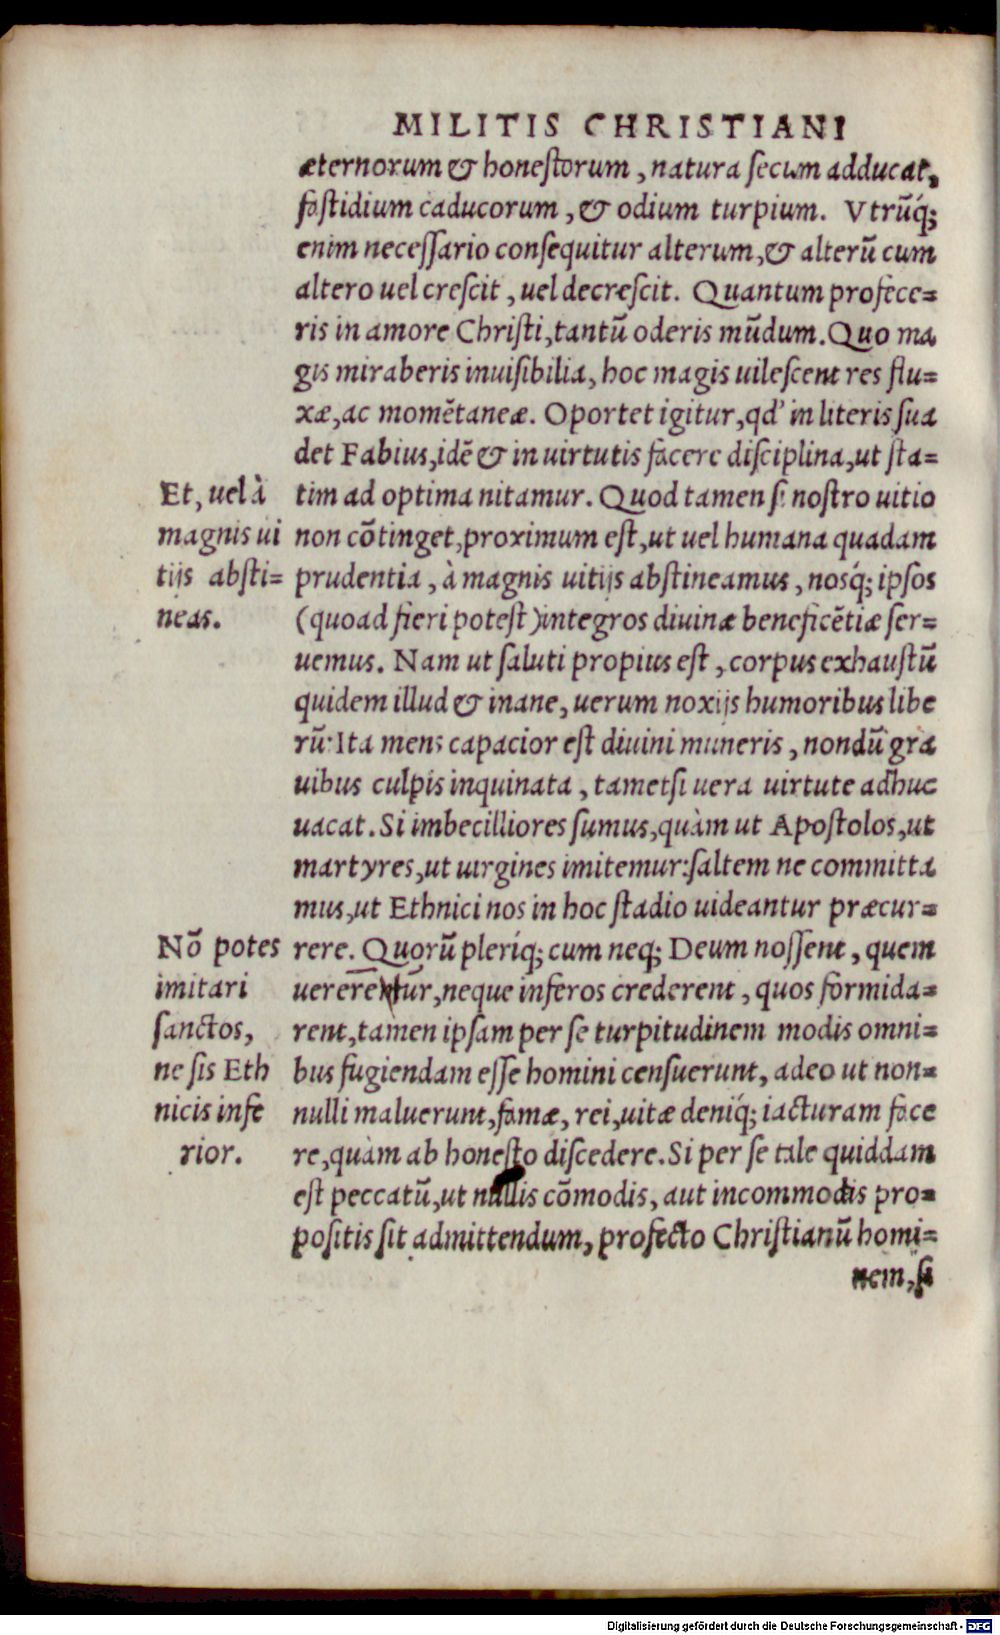 MILITIS CHRISTIANI
æternorum & honestorum, natura secum adducat,
fastidium caducorum, & odium turpium. Vtrũq́;
enim necessario consequitur alterum, & alterũ cum
altero uel crescit, uel decrescit. Quantum profece=
ris in amore Christi, tantũ oderis mũdum. Quo ma
gis miraberis inuisibilia, hoc magis uilescent res flu=
xæ, ac momẽtaneæ. Oportet igitur, qd' in literis sua
det Fabius, idẽ & in uirtutis facere disciplina, ut sta=
tim ad optima nitamur. Quod tamen si nostro uitio
non cõtinget, proximum est, ut uel humana quadam
prudentia, à magnis uitijs abstineamus, nosq́; ipsos
(quoad fieri potest) integros diuinæ beneficẽtiæ ser=
uemus. Nam ut saluti propius est, corpus exhaustũ
quidem illud & inane, uerum noxijs humoribus libe
rũ: Ita mens capacior est diuini muneris, nondũ gra
uibus culpis inquinata, tametsi uera uirtute adhuc
uacat. Si imbecilliores sumus, quàm ut Apostolos, ut
martyres, ut uirgines imitemur: saltem ne committa
mus, ut Ethnici nos in hoc stadio uideantur præcur=
rere. Quorũ pleriq́; cum neq; Deum nossent, quem
uererentur, neque inferos crederent, quos formida=
rent, tamen ipsam per se turpitudinem modis omni=
bus fugiendam esse homini censuerunt, adeo ut non=
nulli maluerunt, famæ, rei, uitæ deniq́; iacturam face
re, quàm ab honesto discedere. Si per se tale quiddam
est peccatũ, ut nullis cõmodis, aut incommodis pro=
positis sit admittendum, profecto Christianũ homi=
nem, si
Et, uel à
magnis ui
tijs absti=
neas.
Nõ potes
imitari
sanctos,
ne sis Eth
nicis infe
rior.
Digitalisierung gefördert durch die Deutsche Forschungsgemeinschaft - DFG